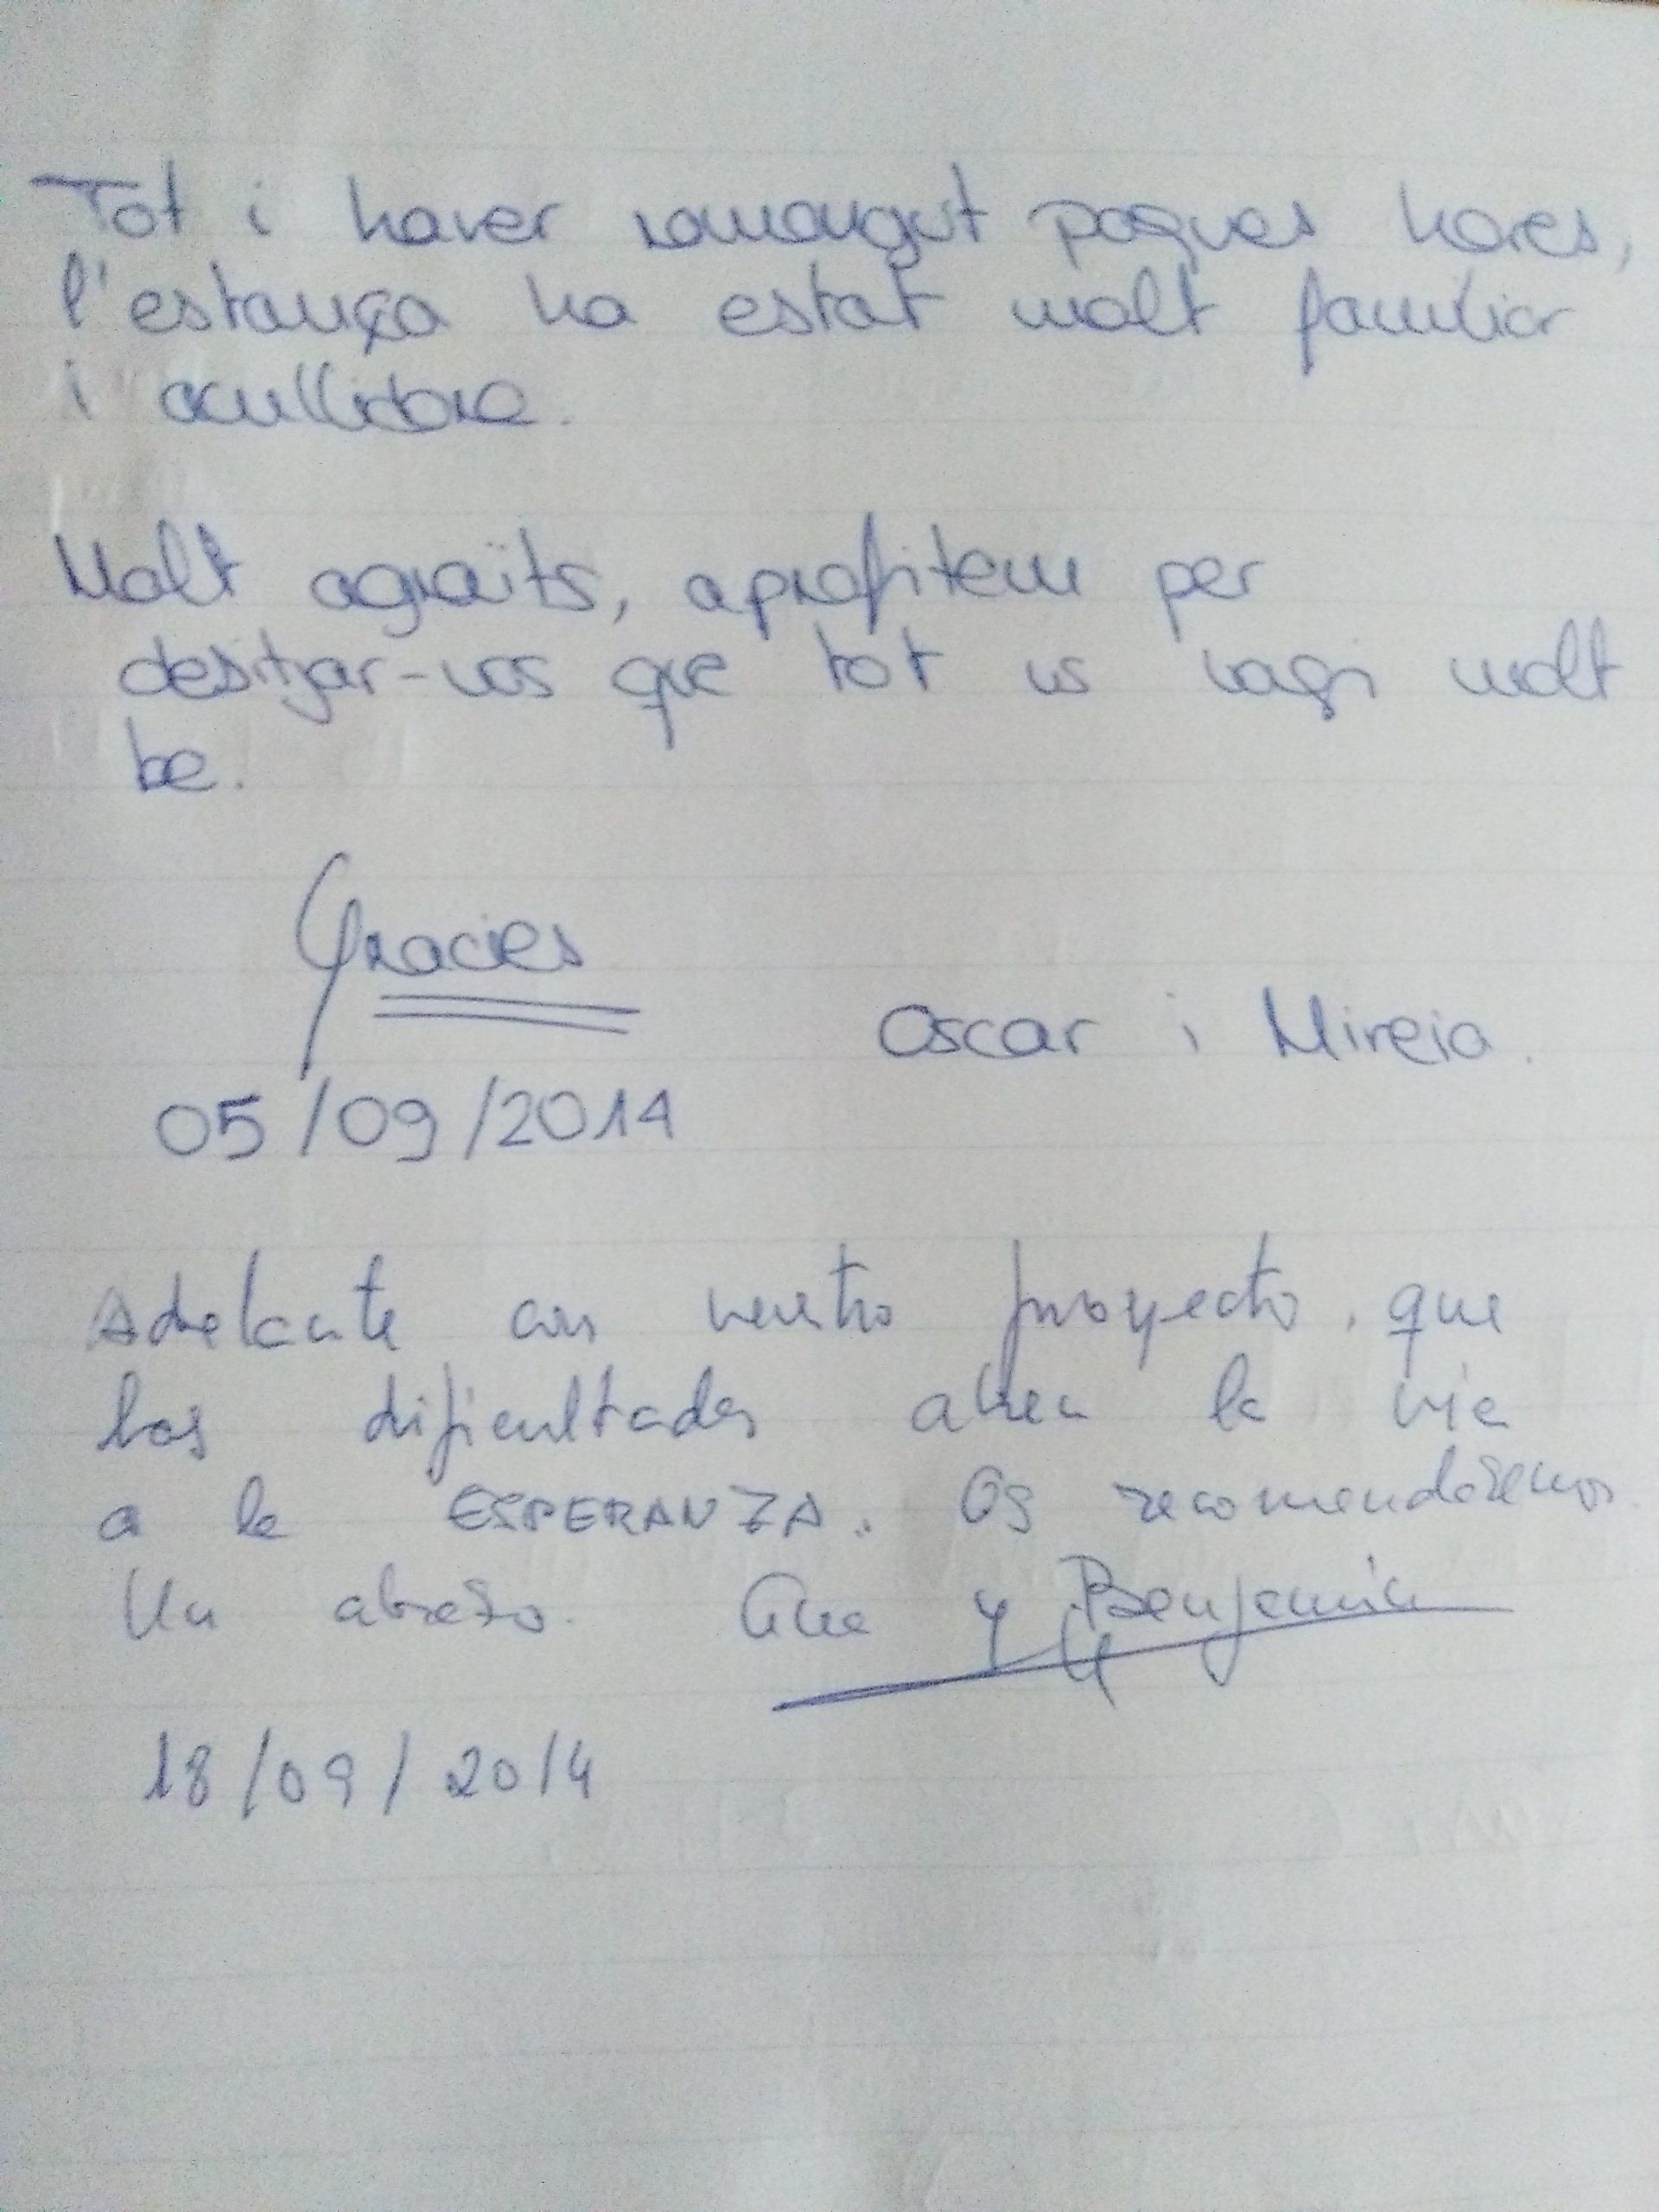 Tot i haver romangut poques hores,
l'estança ha estat molt familiar
i acullidora.
Molt agraïts, aprofitem per
desitjar-vos que tot us vagi molt
be.
Gracies
Oscar i Mireia.
05/09/2014
Adelante con vuestro proyecto, que
las dificultades abren la via
a la ESPERANZA. Os recomendaremos.
Un abrazo. Ana y Benjamín
18/09/2014